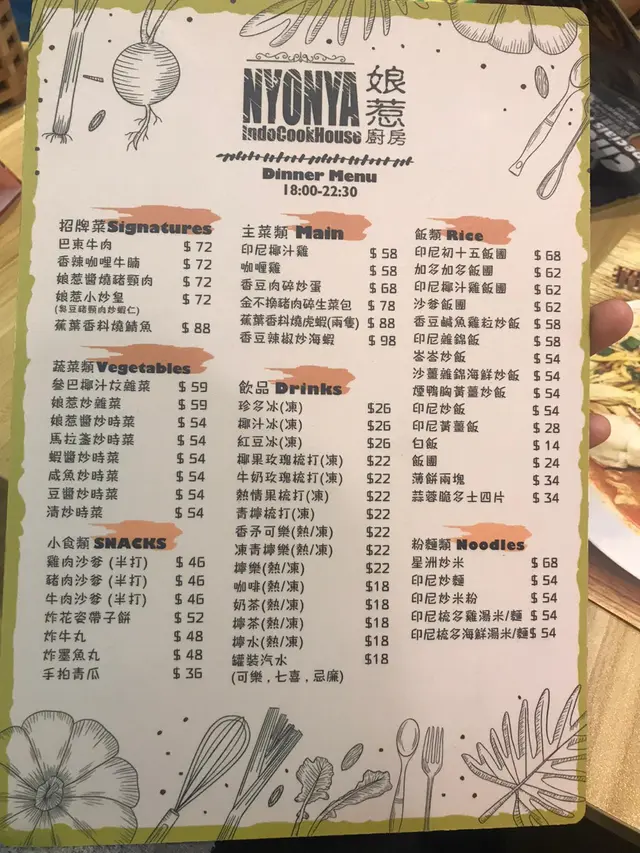 NYONYA 娘惹
IndoCookHouse 廚房
Dinner Menu
18:00-22:30
招牌菜Signatures
巴東牛肉 $ 72
香辣咖喱牛腩 $ 72
娘惹醬燒豬頸肉 $ 72
娘惹小炒皇 $ 72
(臭豆豬頸肉炒蝦仁)
蕉葉香料燒鯖魚 $ 88
蔬菜類Vegetables
參巴椰汁炆雜菜 $ 59
娘惹炒雜菜 $ 59
娘惹醬炒時菜 $ 54
馬拉盞炒時菜 $ 54
蝦醬炒時菜 $ 54
咸魚炒時菜 $ 54
豆醬炒時菜 $ 54
清炒時菜 $ 54
小食類 SNACKS
雞肉沙爹 (半打) $ 46
豬肉沙爹 (半打) $ 46
牛肉沙爹 (半打) $ 46
炸花姿帶子餅 $ 52
炸牛丸 $ 48
炸墨魚丸 $ 48
手拍青瓜 $ 36
主菜類 Main
印尼椰汁雞 $ 58
咖喱雞 $ 58
香豆肉碎炒蛋 $ 68
金不換豬肉碎生菜包 $ 78
蕉葉香料燒虎蝦(兩隻) $ 88
香豆辣椒炒海蝦 $ 98
飲品 Drinks
珍多冰(凍) $26
椰汁冰(凍) $26
紅豆冰(凍) $26
椰果玫瑰梳打(凍) $22
牛奶玫瑰梳打(凍) $22
熱情果梳打(凍) $22
青檸梳打(凍) $22
香矛可樂(熱/凍) $22
凍青檸樂(熱/凍) $22
檸樂(熱/凍) $22
咖啡(熱/凍) $18
奶茶(熱/凍) $18
檸茶(熱/凍) $18
檸水(熱/凍) $18
罐裝汽水 $18
(可樂 , 七喜 , 忌廉)
飯類 Rice
印尼初十五飯團 $ 68
加多加多飯團 $ 62
印尼椰汁雞飯團 $ 62
沙爹飯團 $ 62
香豆鹹魚雞粒炒飯 $ 58
印尼雜錦飯 $ 58
崙崙炒飯 $ 54
沙薑雜錦海鮮炒飯 $ 54
煙鴨胸黃薑炒飯 $ 54
印尼炒飯 $ 54
印尼黃薑飯 $ 28
白飯 $ 14
飯團 $ 24
薄餅兩塊 $ 34
蒜蓉脆多士四片 $ 34
粉麵類 Noodles
星洲炒米 $ 68
印尼炒麵 $ 54
印尼炒米粉 $ 54
印尼梳多雞湯米/麵 $ 54
印尼梳多海鮮湯米/麵$ 54